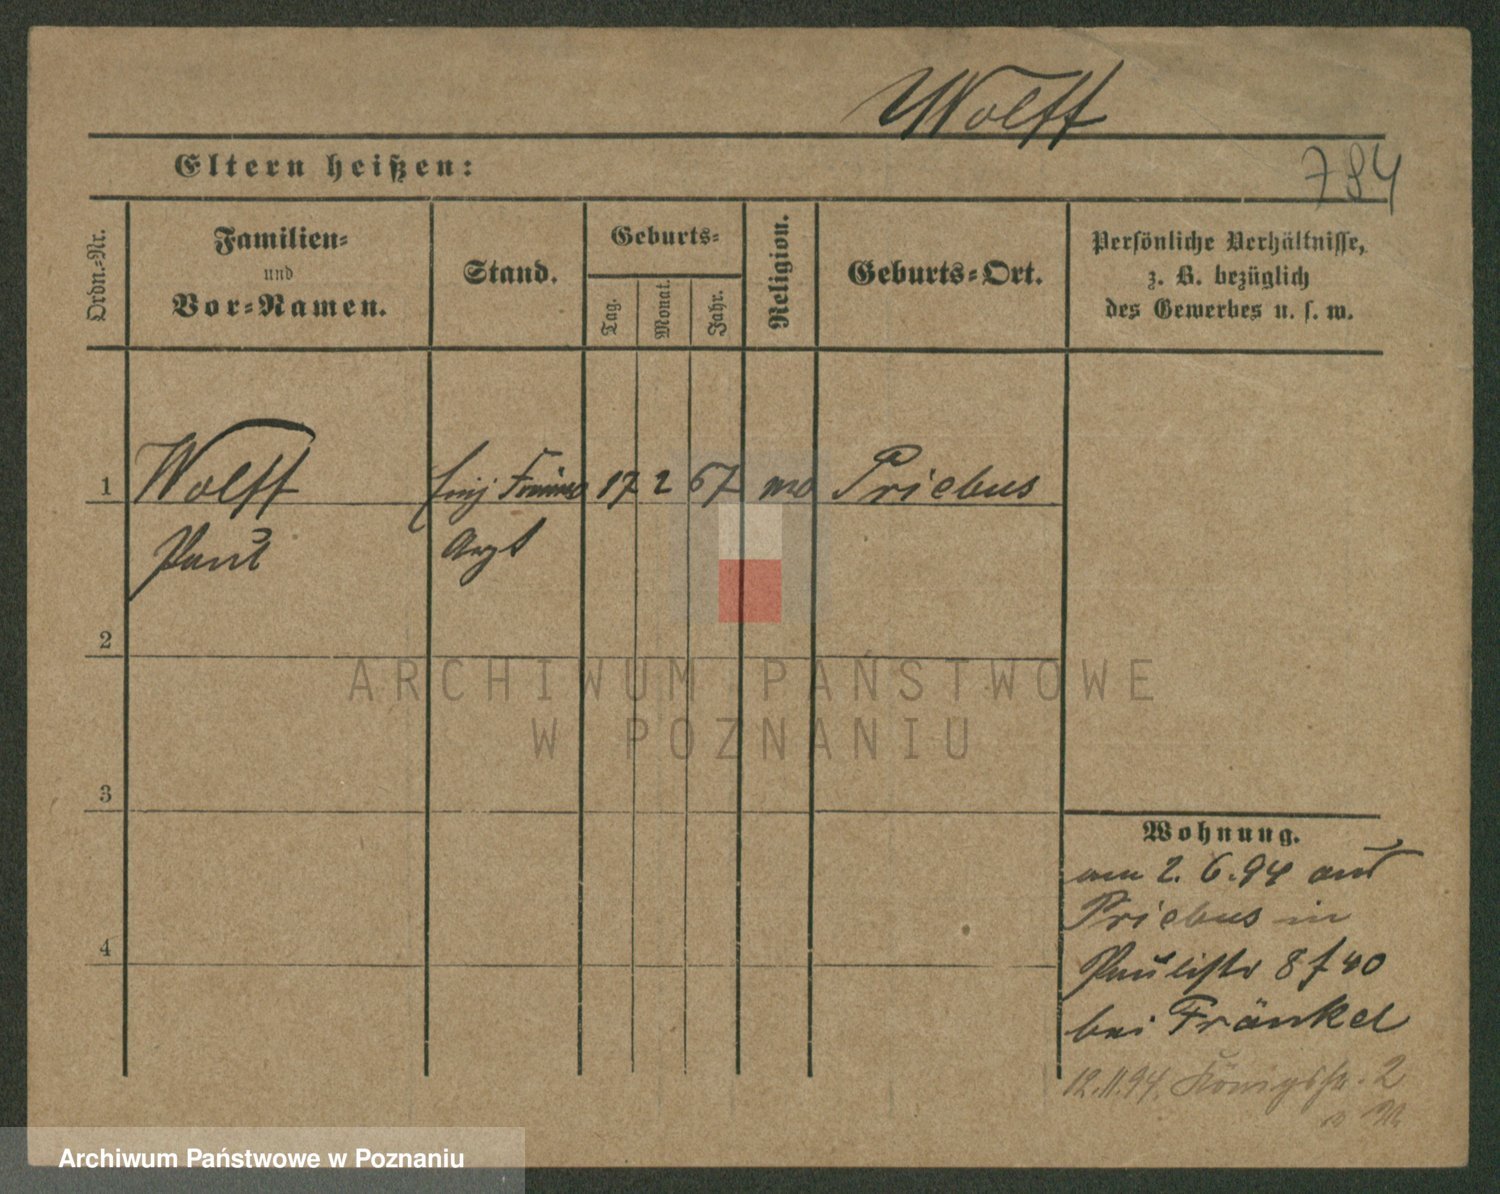 Wolff
Eltern heißen:
784
Ordn.-Nr.
Familien-
und
Vor-Namen.
Stand.
Geburts-
Tag.
Monat.
Jahr.
Religion.
Geburts-Ort.
Persönliche Verhältnisse,
z. B. bezüglich
des Gewerbes u. s. w.
1 Wolff 17 2 67 mos Priebus
Paul Arzt
2
3
4
Wohnung.
am 2. 6. 94 aus
Priebus in
Paulistr 8
bei Fränkel
12.11.94. Königstr. 2
ARCHIWUM PAŃSTWOWE
W POZNANIU
Archiwum Państwowe w Poznaniu